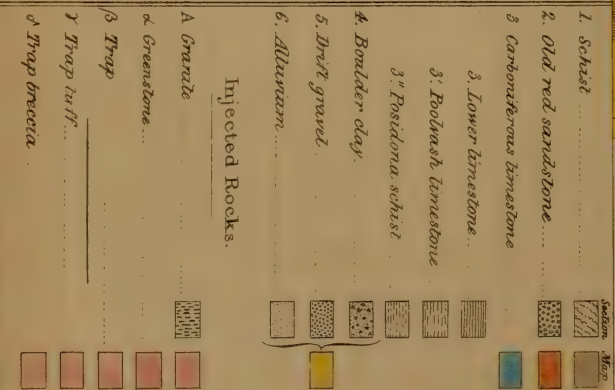 Section. Map.
1. Schist
2. Old red sandstone
3 Carboniferous limestone
3. Lower limestone
3' Poolwash limestone
3" Posidona schist
4. Boulder clay
5. Drift gravel
6. Alluvium
Injected Rocks.
A Granite
α Greenstone
β Trap
γ Trap tuff
δ Trap breccia